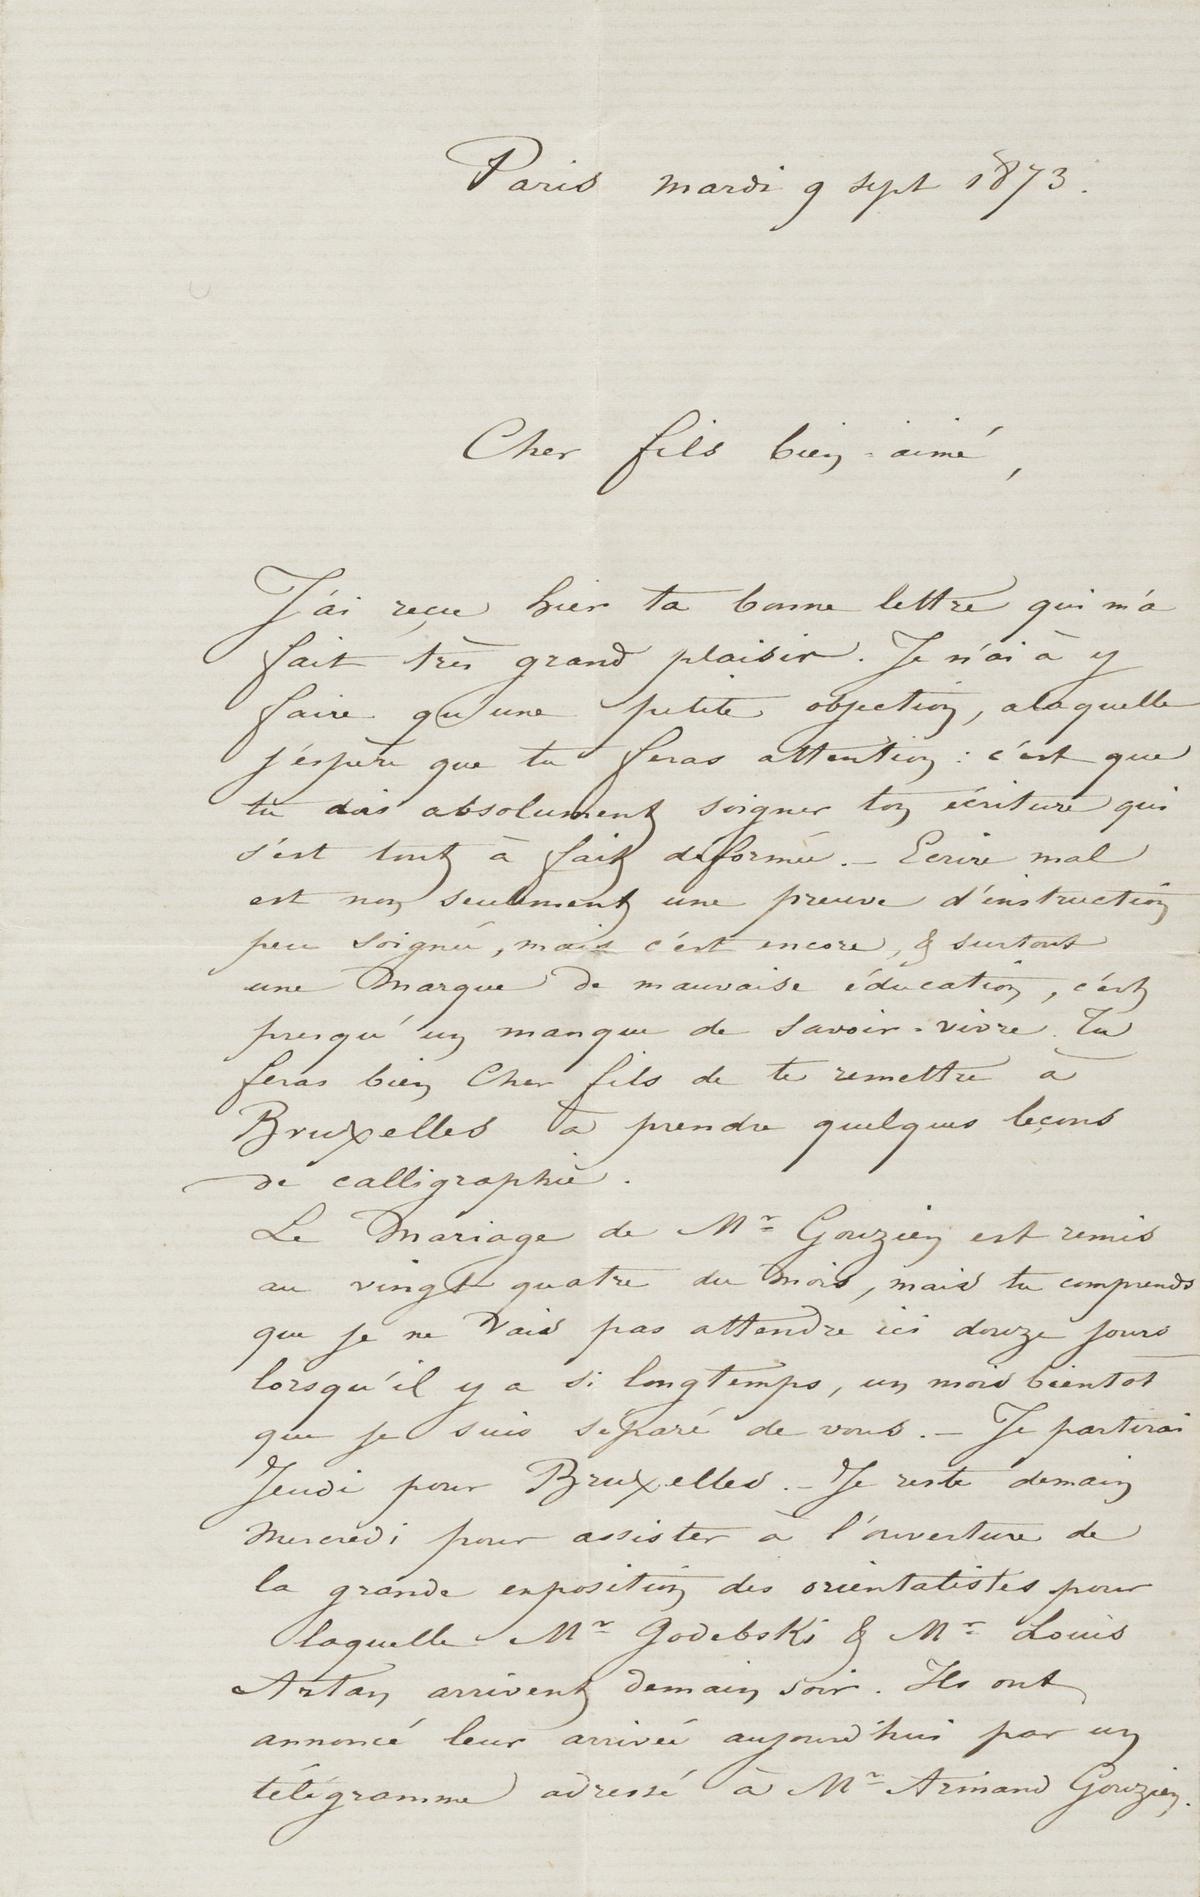 Paris mardi 9 sept 1873.
Cher fils bien-aimé,
J'ai reçu hier ta bonne lettre qui m'a
fait très grand plaisir. Je n'ai à y
faire qu'une petite objection, alaquelle
j'éspère que tu feras attention : c'est que
tu dois absolument soigner ton écriture qui
s'est tout à fait déformée. — Ecrire mal
est non seulement une preuve d'instruction
peu soignée, mais c'est encore, & surtout
une marque de mauvaise éducation, c'est
presqu'un manque de savoir-vivre. Tu
feras bien Cher fils de te remettre à
Bruxelles à prendre quelques leçons
de calligraphie.
Le Mariage de Mr Gouzien est remis
au vingt quatre du mois, mais tu comprends
que je ne vais pas attendre ici douze jours
lorsqu'il y a si longtemps, un mois bientot
que je suis séparé de vous. — Je partirai
Jeudi pour Bruxelles. — Je reste demain
Mercredi pour assister à l'ouverture de
la grande exposition des orientalistes pour
laquelle Mr Godebski & Mr Louis
Artan arrivent demain soir. Ils ont
annoncé leur arrivée aujourd'hui par un
télégramme adressé à Mr Armand Gouzien.